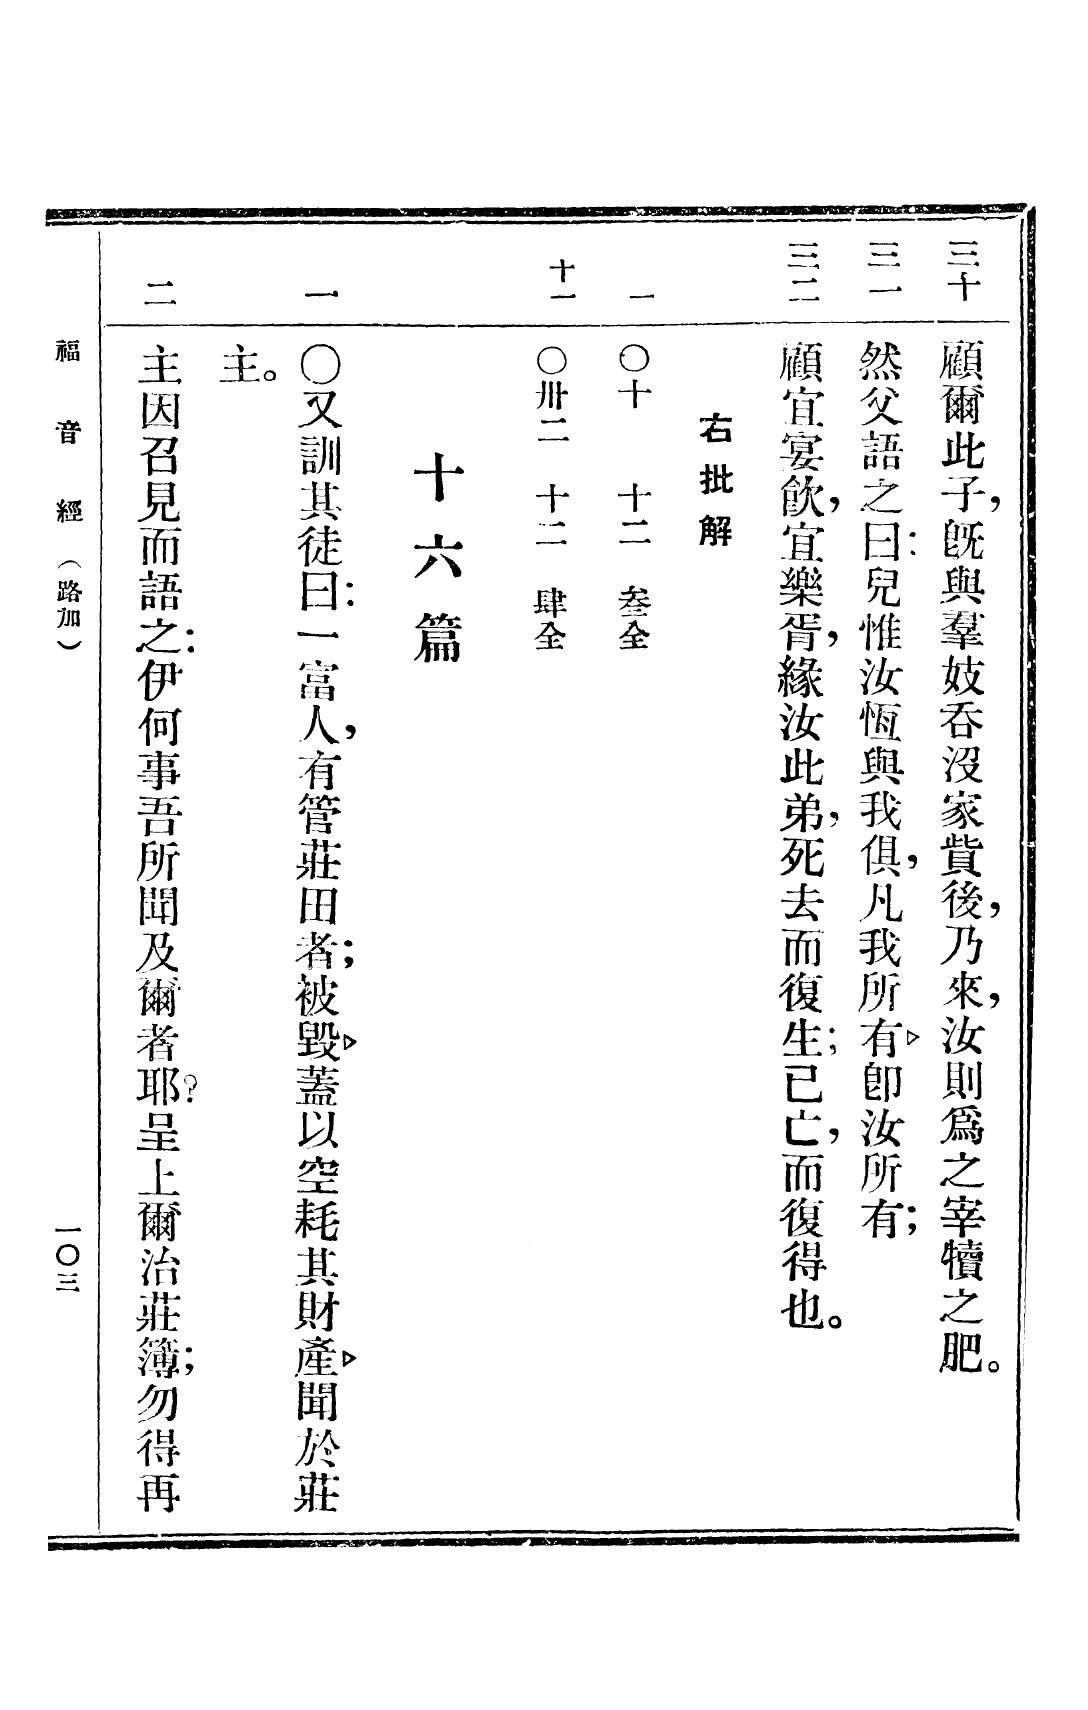 三十 顧爾此子，旣與羣妓呑沒家貲後，乃來，汝則爲之宰犢之肥。
三一 然父語之曰：兒惟汝恆與我俱，凡我所有▹卽汝所有；
三二 顧宜宴飮，宜樂胥，緣汝此弟，死去而復生；已亡，而復得也。
右批解
一 〇十 十二 叄仝
十一 〇卅二 十二 肆仝
十六篇
一 〇又訓其徒曰：一富人，有管莊田者；被毀▹蓋以空耗其財產▹聞於莊
主。
二 主因召見而語之：伊何事吾所聞及爾者耶？呈上爾治莊簿；勿得再
福音經（路加） 一〇三